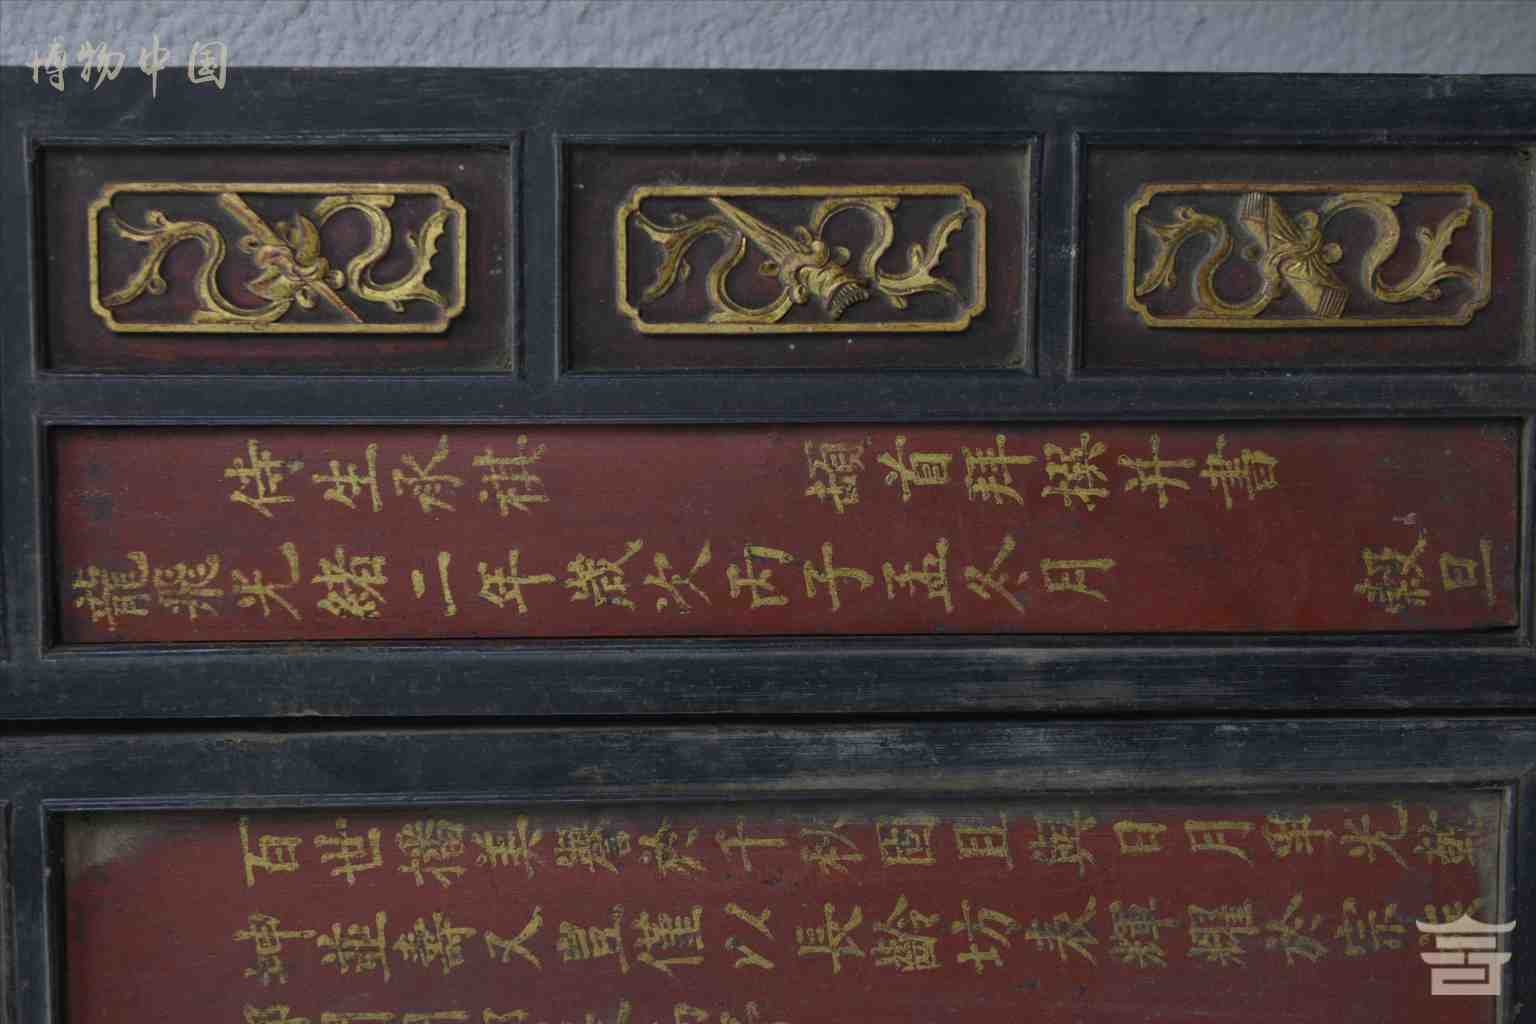 侍生承祺 頓首拜撰并書
龍飛光緒二年歲次丙子孟冬月 穀旦
百世播美譽於千秋固且與日月爭光
神並壽又豈僅以長齡切表輝耀於宗
博物中国